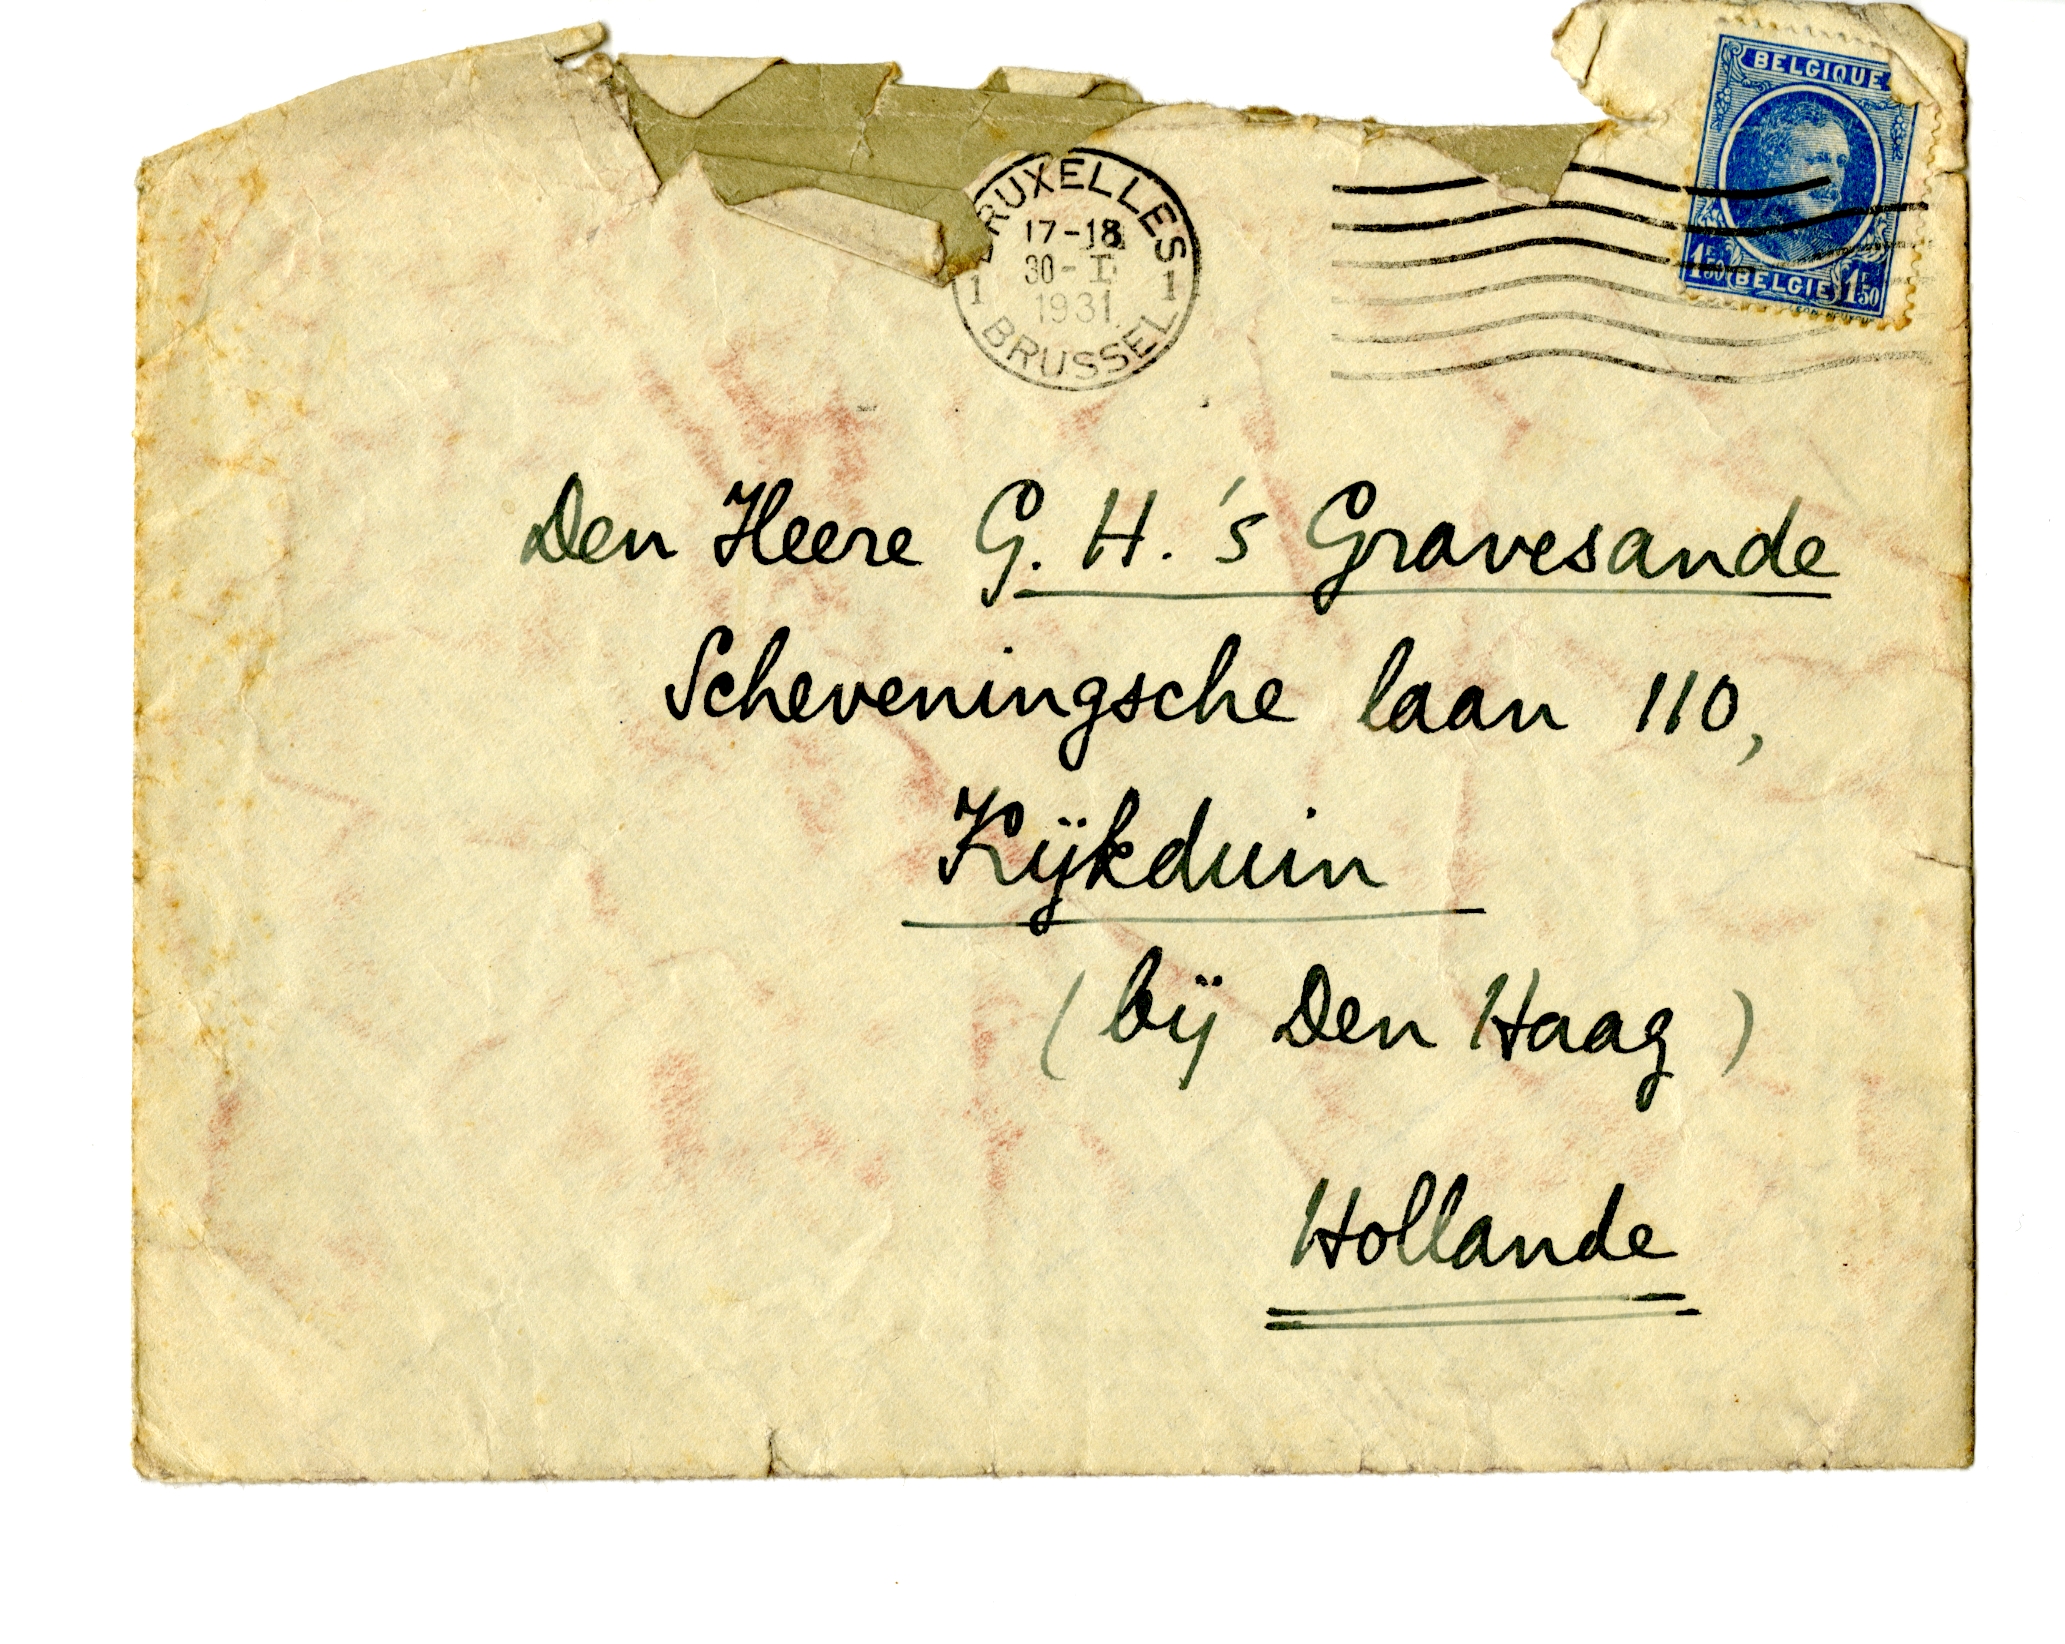 BELGIQUE
BRUXELLES
17-18
30-I
1931
1 1
BRUSSEL
1F50 BELGIË 1F50
Den Heere G. H. 's Gravesande
Scheveningsche laan 110,
Kijkduin
(bij Den Haag)
Hollande